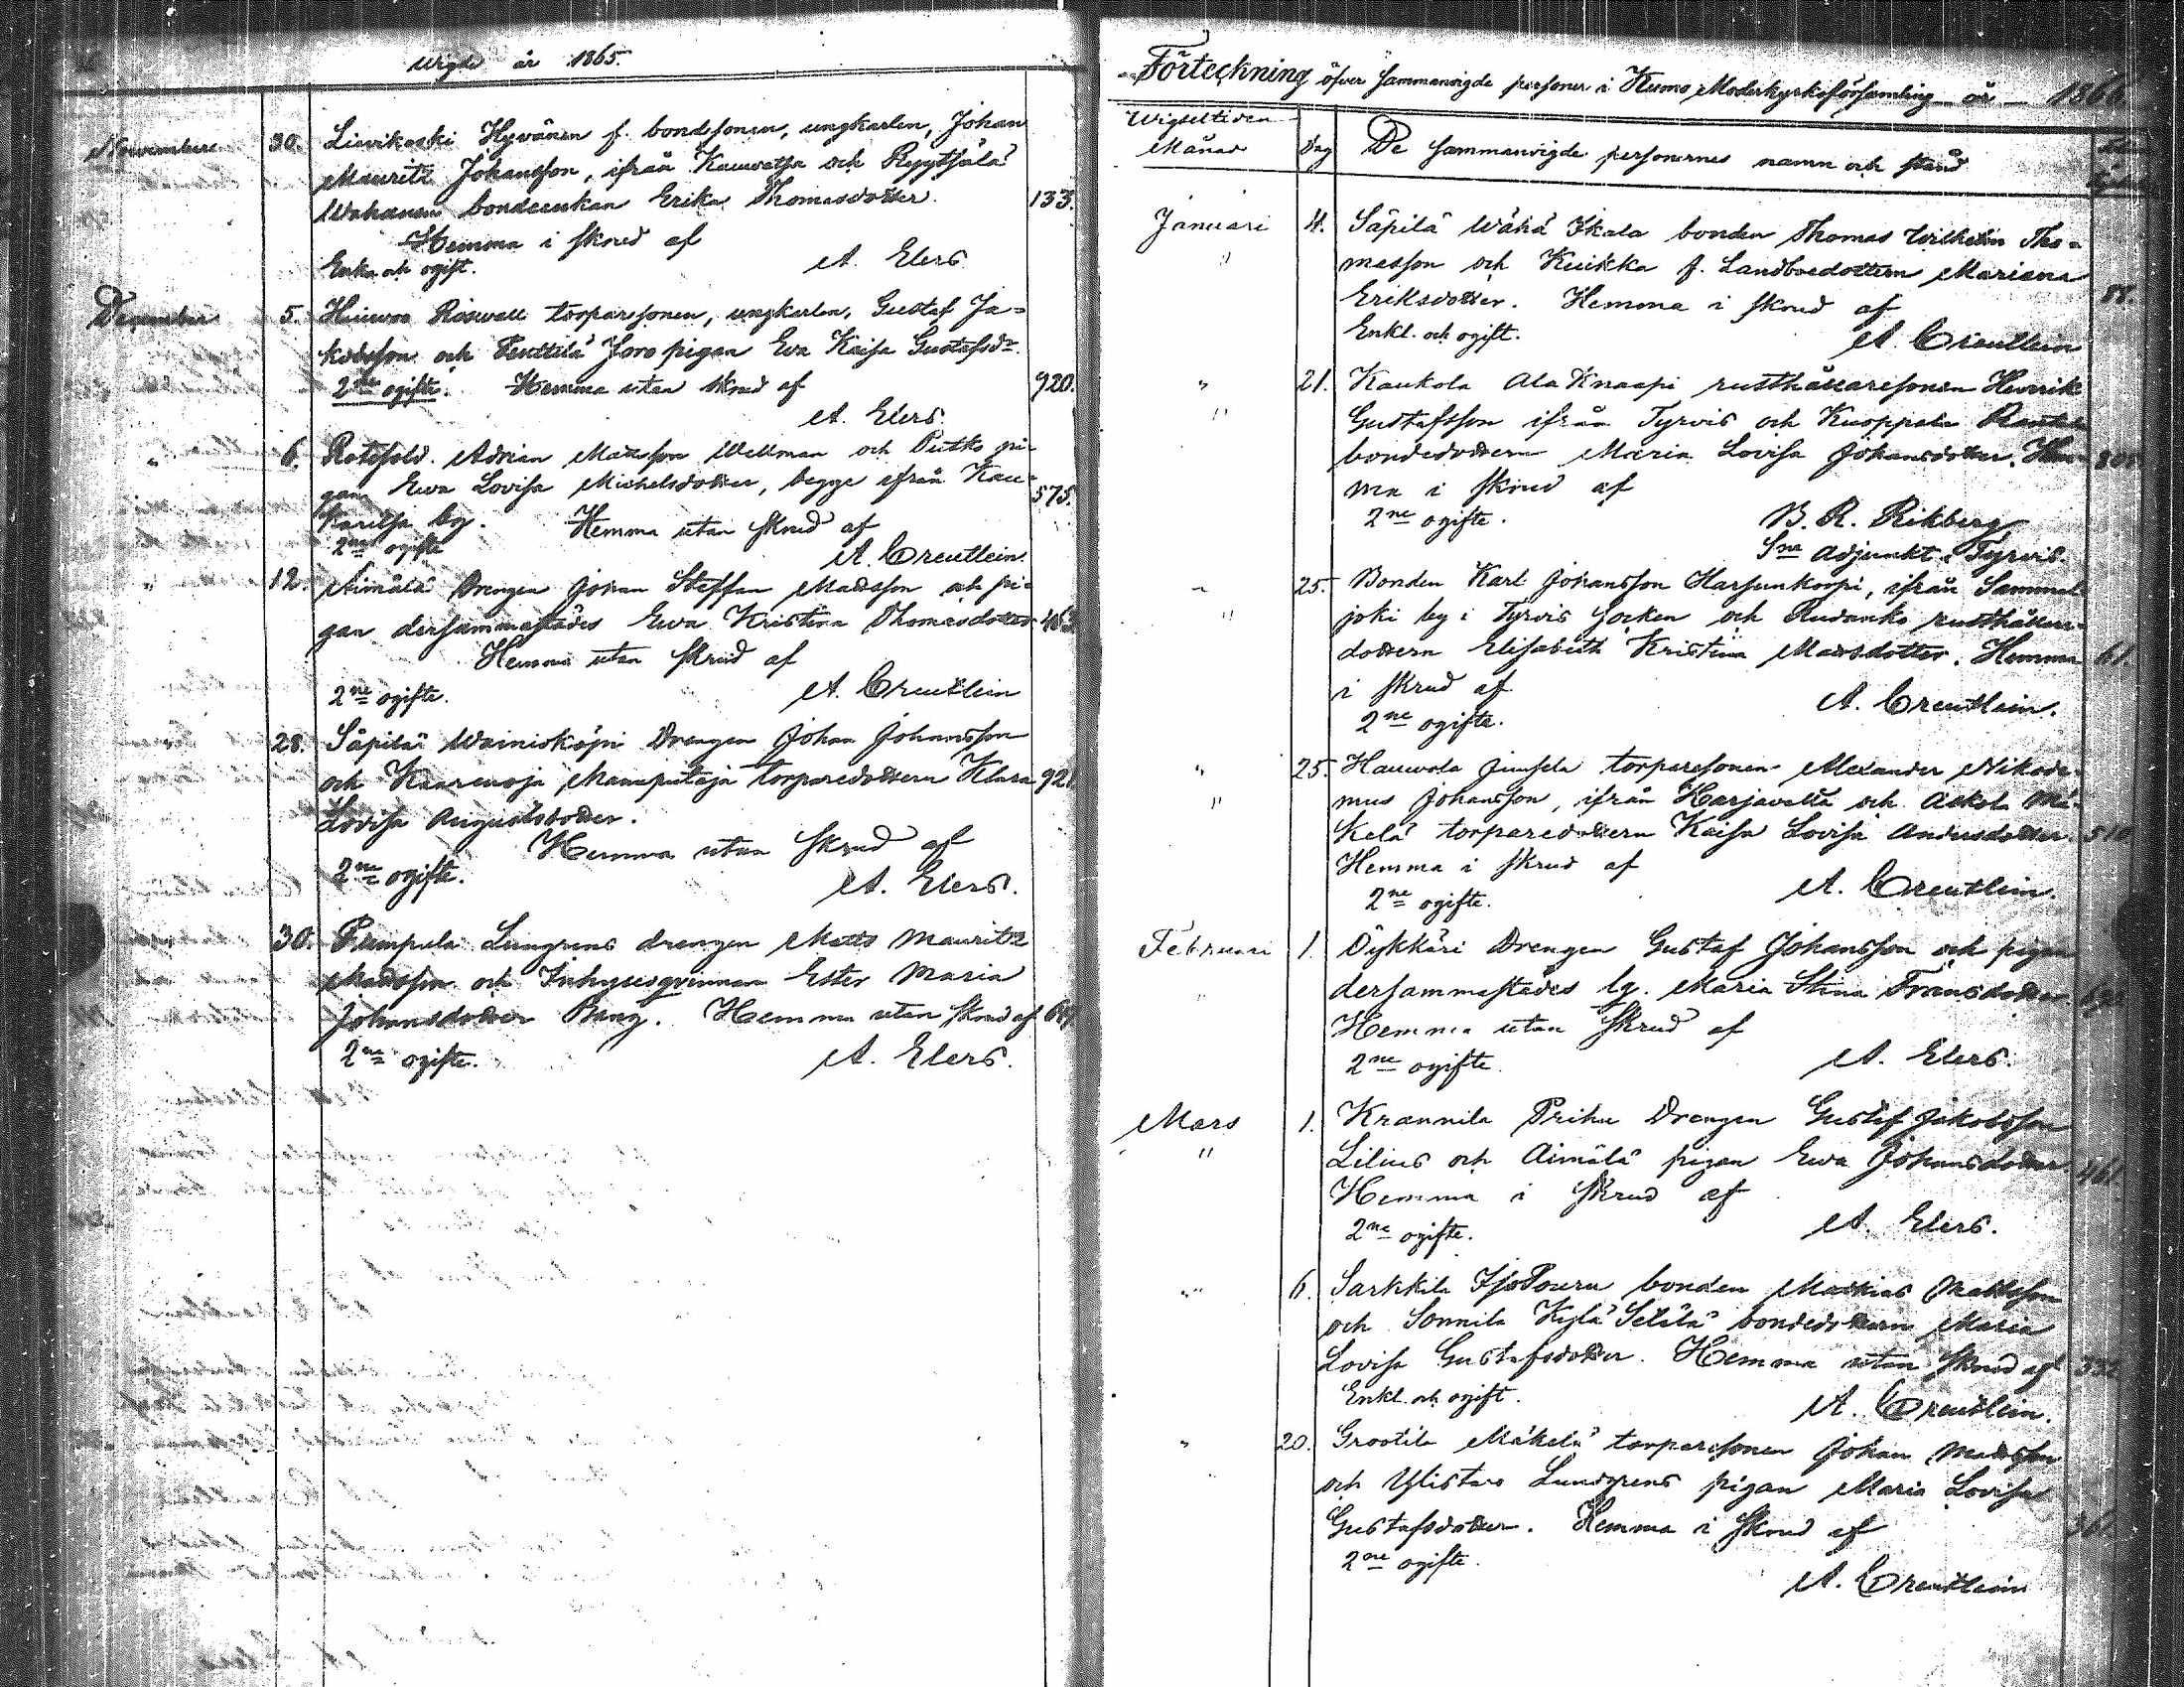 Wigde år 1865.
November 30. Liwikoski Hyvänen f. bondsonen, ungkarlen, Johan
Mauritz Johansson, ifrån Kauvatsa och
bondeenkan Erika Thomasdotter. 133.
Hemma i skrud af
Enka och ogift. A. Elers
December 5. torparesonen, ungkarlen, Gustaf Ja=
kobsson och Joro pigan Eva Kaisa Gustafsdr.
2ne ogifte. Hemma utan skrud af 920.
A. Elers.
" 6. Rotesold. Adrian Matsson Wellman och pi=
gan Ewa Lovisa Michelsdotter, begge ifrån Kau= 575.
karitsa by. Hemma utan skrud af
2ne ogifte A. Creutlein.
" 12. Aimälä Drengen Johan Steffan Madsson och pi=
gan dersammastädes Ewa Kristina Thomasdotter
Hemma utan skrud af
2ne ogifte. A. Creutlein
28. Säpilä Drengen Johan Johansson
och torparedottern Klara 921.
Lovisa Augustsdotter.
Hemma utan skrud af
2ne ogifte. A. Elers.
30. Pumpula Lungrens drengen Matts Mauritz
Madsson och Inhysesqvinnan Ester Maria
Johansdotter Bang. Hemma utan skrud af
2ne ogifte. A. Elers.
Förteckning öfver Sammanvigde personer i Kumo Moderkyrkoförsamling år 1866
Wigseltiden
Månad Dag De Sammanvigde personernes namn och stånd
Januari 4. Säpilä Wähä Ikala bonden Thomas Wilhelm Tho=
" masson och Kuikka f. Landboedottern Mariana
Eriksdotter. Hemma i skrud af 88.
Enkl. och ogift. A. Creutlein
" 21. Kaukola Ala Knaapi rusthållaresonen Henrik
" Gustafsson ifrån Tyrvis och Kuoppala
bondedottern Maria Lovisa Johansdotter. Hem=
ma i skrud af
2ne ogifte. B. R. Rikberg
Sne Adjunkt i Tyrvis.
" 25. Bonden Karl Johansson Harjunkorpi, ifrån Sammal
" joki by i Tyrvis Socken och Rudanko rusthållare
dottern Elisabeth Kristina Madsdotter. Hemma 61.
i skrud af A. Creutlein.
2ne ogifte.
" 25. torparesonen Alexander Nikode=
" mus Johansson, ifrån Harjavalta och Askola Mä=
kelä torparedottern Kaisa Lovisa Andersdotter. 510
Hemma i skrud af
2ne ogifte. A. Creutlein.
Februari 1. Öykkäri Drengen Gustaf Johansson och pigan
" dersammastädes Maria Stina Fransdotter
Hemma utan skrud af
2ne ogifte. A. Elers.
Mars 1. Krannila Prihu Drengen Gustaf Jakobsson
" Lilius och Aimälä pigan Ewa Johansdotter. 461.
Hemma i skrud af
2ne ogifte. A. Elers.
" 6. Sarkkila Iso Pouru bonden Mathias Mattsson
och Sonnila Kylä Setälä bondedottern Maria
Lovisa Gustafsdotter. Hemma utan skrud af 332
Enkl. och ogift. A. Creutlein.
" 20. Grootila Mäkelä torparesonen Johan Madsson
" och Ylistaro Lundgrens pigan Maria Lovisa
Gustafsdotter. Hemma i skrud af
2ne ogifte.
A. Creutlein